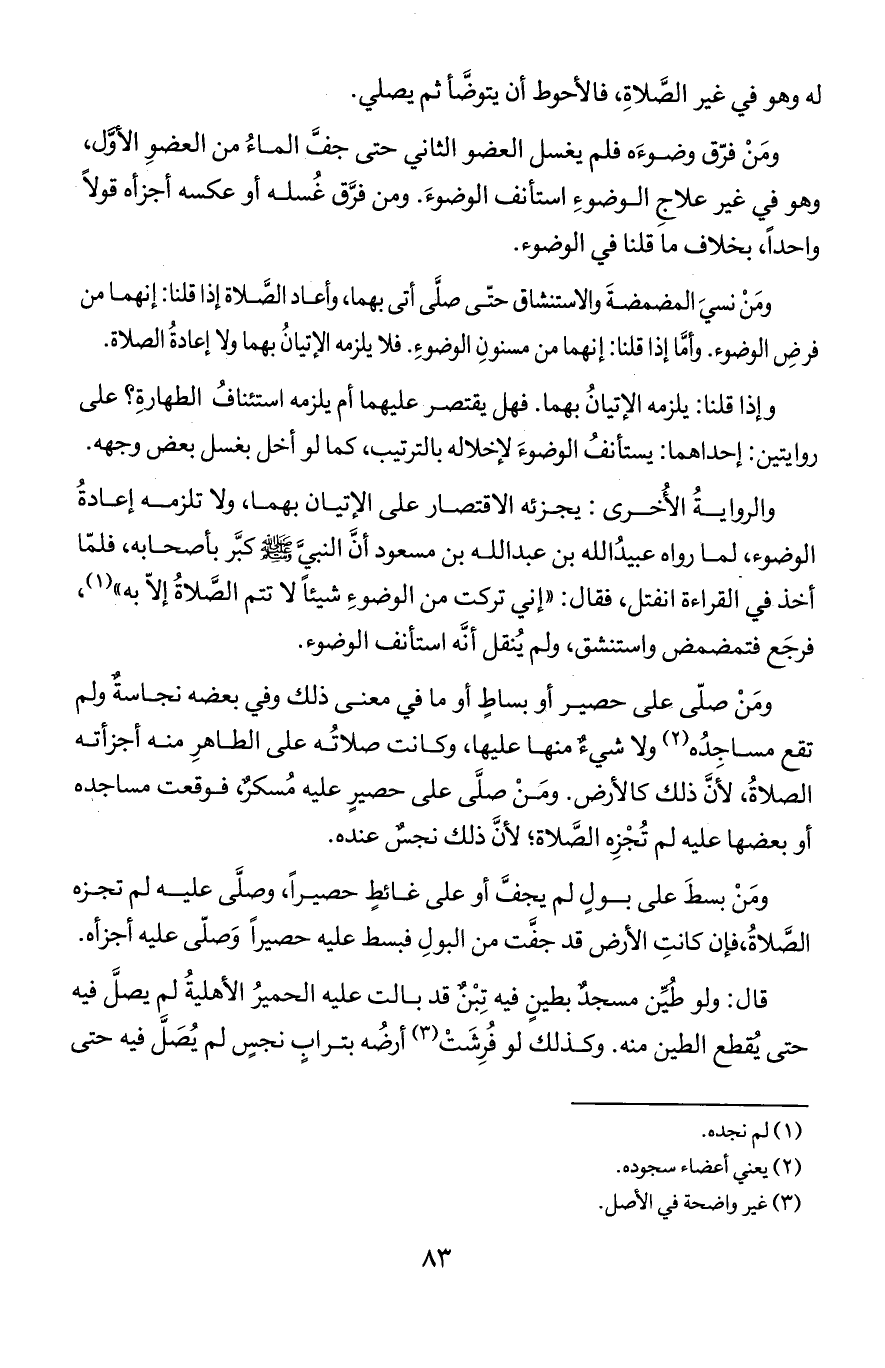 له وهو في غير الصَّلاةِ، فالأحوط أن يتوضَّأ ثم يصلي.
ومَنْ فرّق وضوءَه فلم يغسل العضو الثاني حتى جفَّ الماءُ من العضوِ الأوَّل،
وهو في غير علاجِ الوضوءِ استأنف الوضوءَ. ومن فرَّق غُسله أو عكسه أجزأه قولاً
واحداً، بخلاف ما قلنا في الوضوء.
ومَنْ نسيَ المضمضةَ والاستنشاق حتّى صلَّى أتى بهما، وأعاد الصَّلاة إذا قلنا: إنهما من
فرضِ الوضوء. وأمَّا إذا قلنا: إنهما من مسنونِ الوضوءِ. فلا يلزمه الإتيانُ بهما ولا إعادةُ الصلاة.
وإذا قلنا: يلزمه الإتيانُ بهما. فهل يقتصر عليهما أم يلزمه استئنافُ الطهارةِ؟ على
روايتين: إحداهما: يستأنفُ الوضوءَ لإخلاله بالترتيب، كما لو أخل بغسل بعض وجهه.
والروايةُ الأُخرى: يجزئه الاقتصار على الإتيان بهما، ولا تلزمه إعادةُ
الوضوء، لما رواه عبيدُالله بن عبدالله بن مسعود أنَّ النبيَّ ﷺ كبَّر بأصحابه، فلمّا
أخذ في القراءة انفتل، فقال: «إني تركت من الوضوءِ شيئاً لا تتم الصَّلاةُ إلاّ به»(١)،
فرجَع فتمضمض واستنشق، ولم يُنقل أنَّه استأنف الوضوء.
ومَنْ صلّى على حصير أو بساطٍ أو ما في معنى ذلك وفي بعضه نجاسةٌ ولم
تقع مساجِدُه(٢) ولا شيءٌ منها عليها، وكانت صلاتُه على الطاهرِ منه أجزأته
الصلاةُ، لأنَّ ذلك كالأرض. ومَنْ صلَّى على حصيرٍ عليه مُسكرٌ، فوقعت مساجده
أو بعضها عليه لم تُجْزِه الصَّلاة؛ لأنَّ ذلك نجسٌ عنده.
ومَنْ بسطَ على بولٍ لم يجفَّ أو على غائطٍ حصيراً، وصلَّى عليه لم تجزه
الصَّلاةُ،فإن كانتِ الأرض قد جفَّت من البولِ فبسط عليه حصيراً وَصلّى عليه أجزأه.
قال: ولو طُيِّن مسجدٌ بطينٍ فيه تِبْنٌ قد بالت عليه الحميرُ الأهليةُ لم يصلَّ فيه
حتى يُقطع الطين منه. وكذلك لو فُرِشَتْ(٣) أرضُه بترابٍ نجسٍ لم يُصَلَّ فيه حتى
(١) لم نجده.
(٢) يعني أعضاء سجوده.
(٣) غير واضحة في الأصل.
٨٣